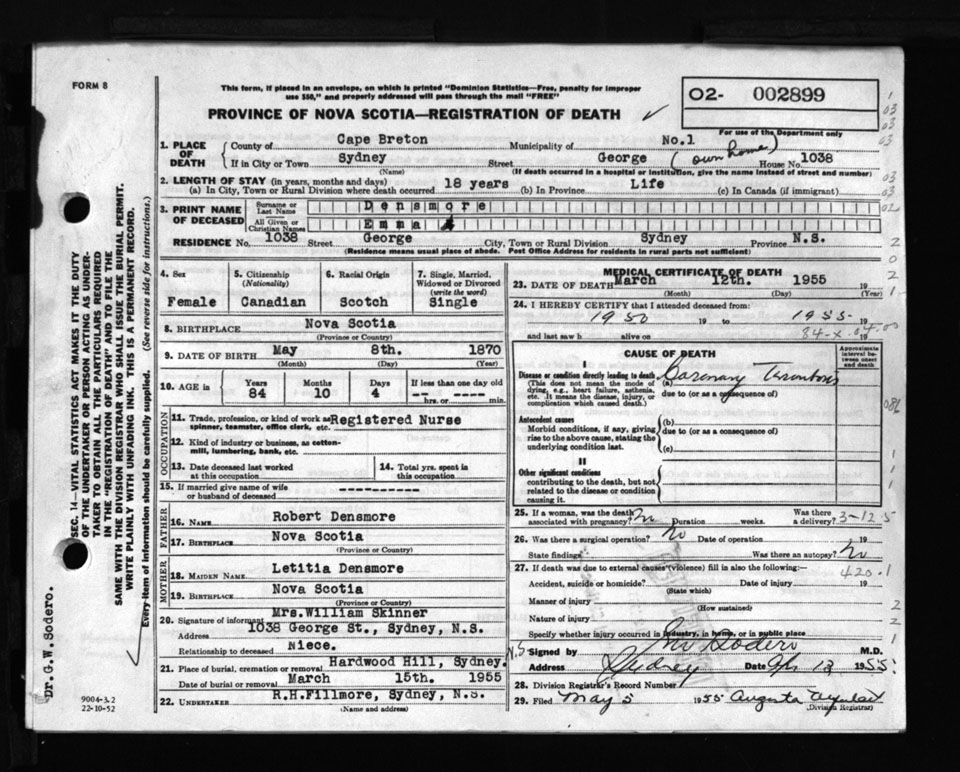 FORM 8
This form, if placed in an envelope, on which is printed "Dominion Statistics—Free, penalty for improper
use $50," and properly addressed will pass through the mail "FREE"
PROVINCE OF NOVA SCOTIA—REGISTRATION OF DEATH
02- 002899
For use of the Department only
1. PLACE OF DEATH
County of Cape Breton Municipality of No.1
If in City or Town Sydney Street George (own home) House No. 1038
(Name) (If death occurred in a hospital or institution, give the name instead of street and number)
2. LENGTH OF STAY (in years, months and days)
(a) In City, Town or Rural Division where death occurred 18 years (b) In Province Life (c) In Canada (if immigrant)
3. PRINT NAME OF DECEASED
Surname or Last Name Densmore
All Given or Christian Names Emma
RESIDENCE No. 1038 Street George City, Town or Rural Division Sydney Province N.S.
(Residence means usual place of abode. Post Office Address for residents in rural parts not sufficient)
4. Sex 5. Citizenship (Nationality) 6. Racial Origin 7. Single, Married, Widowed or Divorced (write the word)
Female Canadian Scotch Single
8. BIRTHPLACE Nova Scotia
(Province or Country)
9. DATE OF BIRTH May 8th. 1870
(Month) (Day) (Year)
10. AGE in Years Months Days If less than one day old
84 10 4 -- hrs. or ---- min.
OCCUPATION
11. Trade, profession, or kind of work as spinner, teamster, office clerk, etc. Registered Nurse
12. Kind of industry or business, as cotton-mill, lumbering, bank, etc.
13. Date deceased last worked at this occupation 14. Total yrs. spent in this occupation
15. If married give name of wife or husband of deceased -----------
FATHER
16. NAME Robert Densmore
17. BIRTHPLACE Nova Scotia
(Province or Country)
MOTHER
18. MAIDEN NAME Letitia Densmore
19. BIRTHPLACE Nova Scotia
(Province or Country)
20. Signature of informant Mrs.William Skinner
Address 1038 George St., Sydney, N.S.
Relationship to deceased Niece.
21. Place of burial, cremation or removal Hardwood Hill, Sydney.
Date of burial or removal March 15th. 1955
22. UNDERTAKER R.H.Fillmore, Sydney, N.S.
(Name and address)
MEDICAL CERTIFICATE OF DEATH
23. DATE OF DEATH March 12th. 1955 19
(Month) (Day) (Year)
24. I HEREBY CERTIFY that I attended deceased from:
1950 19 to 1955 19
and last saw h alive on 19
CAUSE OF DEATH
Approximate interval between onset and death
I
Disease or condition directly leading to death
(This does not mean the mode of dying, e.g., heart failure, asthenia, etc. It means the disease, injury, or complication which caused death.)
(a) Coronary Thrombosis
due to (or as a consequence of)
Antecedent causes
Morbid conditions, if any, giving rise to the above cause, stating the underlying condition last.
(b)
due to (or as a consequence of)
(c)
II
Other significant conditions
contributing to the death, but not related to the disease or condition causing it.
25. If a woman, was the death associated with pregnancy? No Duration weeks. Was there a delivery?
3-12 5
26. Was there a surgical operation? No Date of operation 19
State findings Was there an autopsy? No
27. If death was due to external causes (violence) fill in also the following:—
420.1
Accident, suicide or homicide? Date of injury 19
(State which)
Manner of injury
(How sustained)
Nature of injury
Specify whether injury occurred in industry, in home, or in public place
Signed by Sodero M.D.
Address Sydney N.S. Date 13 1955
28. Division Registrar's Record Number
29. Filed May 5 1955 Augusta
(Division Registrar)
SEC. 14—VITAL STATISTICS ACT MAKES IT THE DUTY
OF THE UNDERTAKER OR PERSON ACTING AS UNDER-
TAKER TO OBTAIN ALL THE PARTICULARS REQUIRED
IN THE "REGISTRATION OF DEATH" AND TO FILE THE
SAME WITH THE DIVISION REGISTRAR WHO SHALL ISSUE THE BURIAL PERMIT.
WRITE PLAINLY WITH UNFADING INK. THIS IS A PERMANENT RECORD.
Every item of information should be carefully supplied. (See reverse side for instructions.)
Dr. G.W. Sodero.
9004-3.2
22-10-52